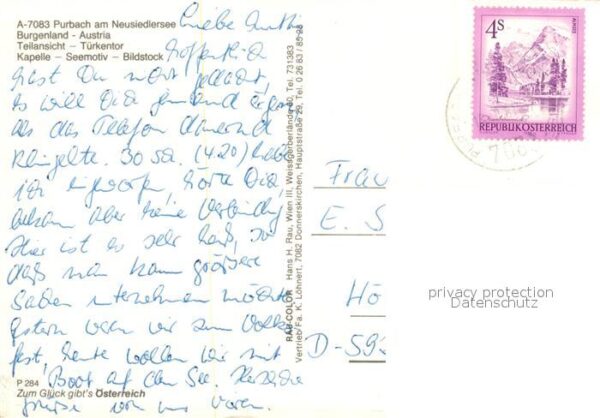 A-7083 Purbach am Neusiedlersee
Burgenland - Austria
Teilansicht – Türkentor
Kapelle – Seemotiv – Bildstock
Liebe
Hoffentlich
hast Du nicht gedacht,
es will Dich jemand ärgern
als das Telefon dauernd
klingelte. 30 (4,20) habe
ich eingeworfen, hörte Dich
bekam aber keine Verbindung
Hier ist es sehr heiß, so
daß man kaum größere
Sachen unternehmen möchte
Gestern waren wir zum Volks-
fest, heute wollen wir mit
Boot auf den See. Herzliche
Grüße von uns
P 284
Zum Glück gibt's Österreich
RAU-COLOR Hans H. Rau, Wien III, Weissgerberlände 50, Tel. 731383
Vertrieb: Fa. K. Löhnert, 7082 Donnerskirchen, Hauptstraße 29, Tel. 0 26 83 / 85 28
4S
ALMSEE
REPUBLIK ÖSTERREICH
Frau
E. S
Hö
D-592
privacy protection
Datenschutz